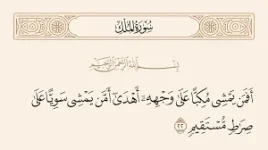 سُورَةُ المُلْكِ
بِسْمِ اللَّهِ الرَّحْمَٰنِ الرَّحِيمِ
أَفَمَن يَمْشِى مُكِبًّا عَلَىٰ وَجْهِهِۦٓ أَهْدَىٰٓ أَمَّن يَمْشِى سَوِيًّا عَلَىٰ
صِرَٰطٍ مُّسْتَقِيمٍ ٢٢